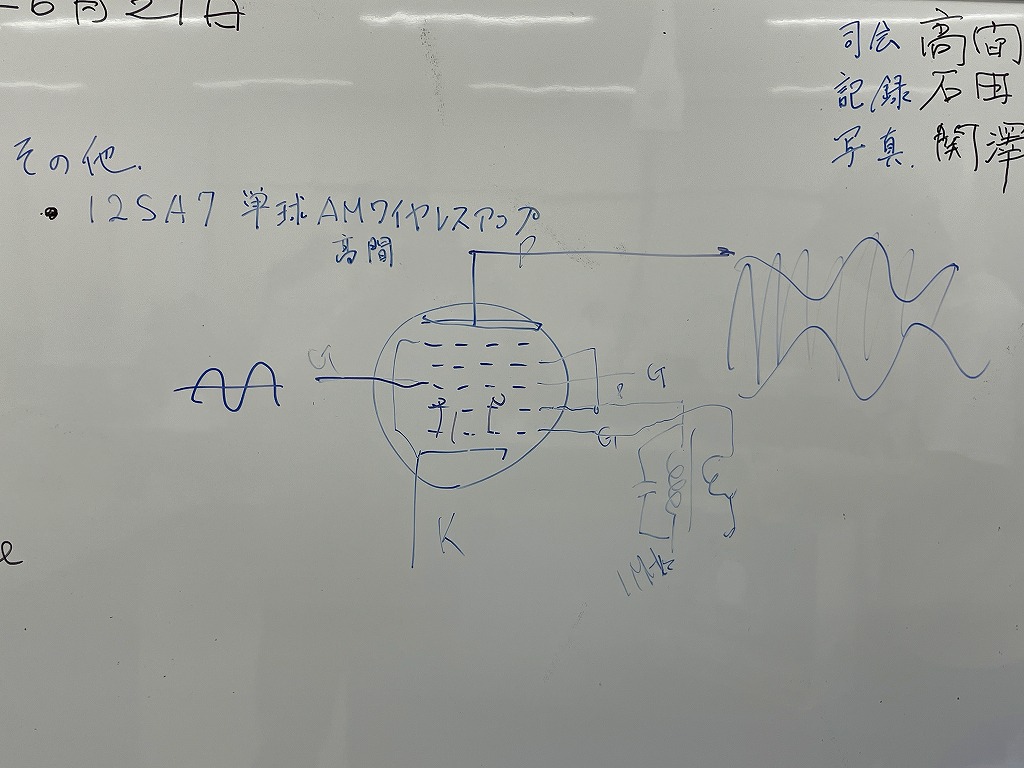 6月21日
司会 高間
記録 石田
写真 関澤
その他.
• 12SA7 単球AMワイヤレスアンプ
高間
P
G
G
P
G
K
1MHz